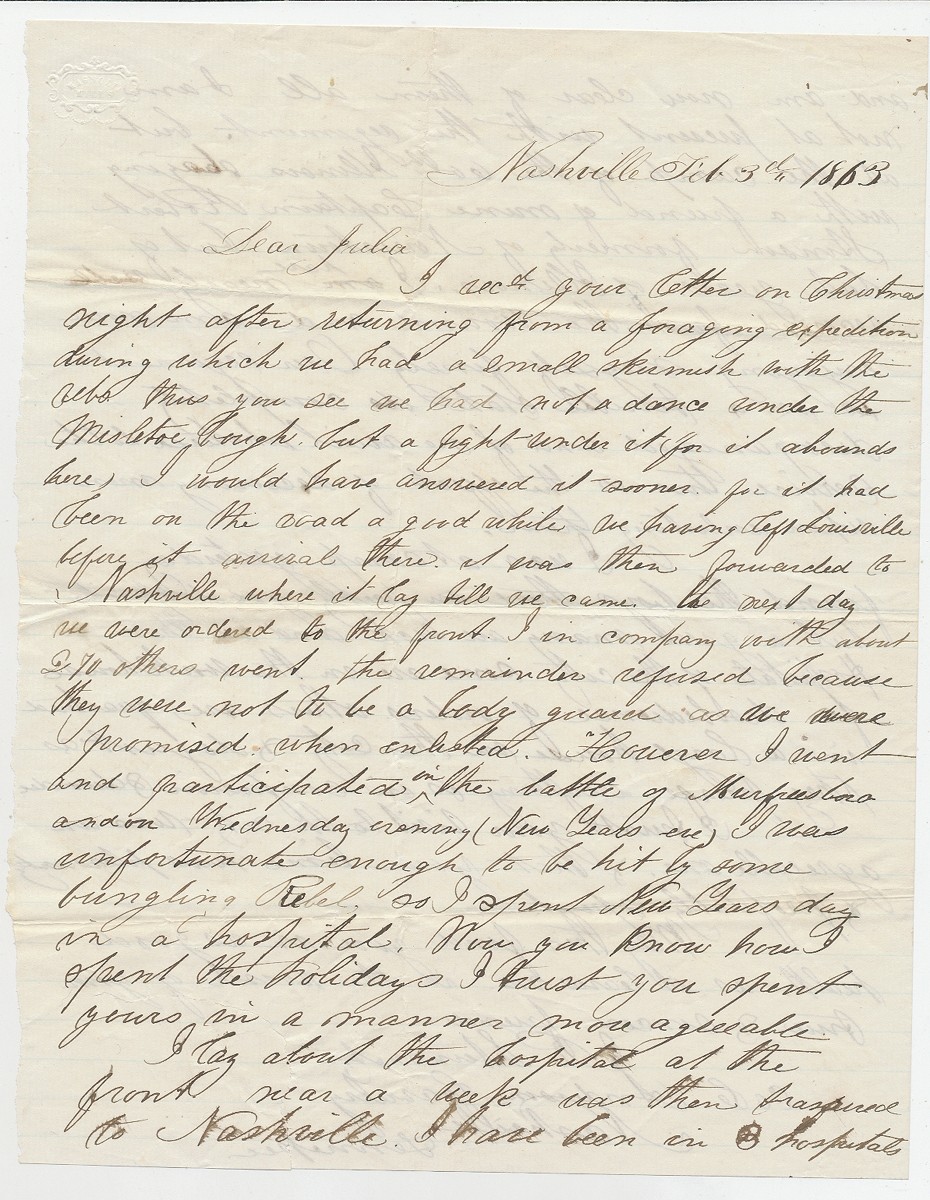 Nashville Feb 3d, 1863
Dear Julia
I recd. your letter on Christmas
night after returning from a foraging expedition
during which we had a small skirmish with the
rebs thus you see we had not a dance under the
Misletoe bough. but a fight under it (for it abounds
here) I would have answered it sooner. for it had
been on the road a good while we having left Louisville
before it arrival there. it was then forwarded to
Nashville where it lay till we came. the next day
we were ordered to the front. I in company with about
270 others went. the remainder refused because
they were not to be a body guard as we were
promised when enlisted. However I went
and participated in the battle of Murfreesboro
and on Wednesday evening (New Years eve) I was
unfortunate enough to be hit by some
bungling Rebel. so I spent New Years day
in a hospital. Now you know how I
spent the holidays I trust you spent
yours in a manner more agreeable.
I lay about the hospital at the
front near a week was then
to Nashville. I have been in 3 hospitals